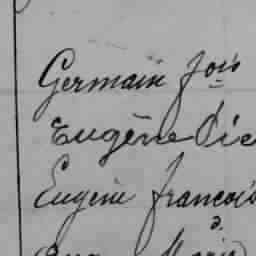 Germain fois
Eugène Pie
Eugène françois
Marie